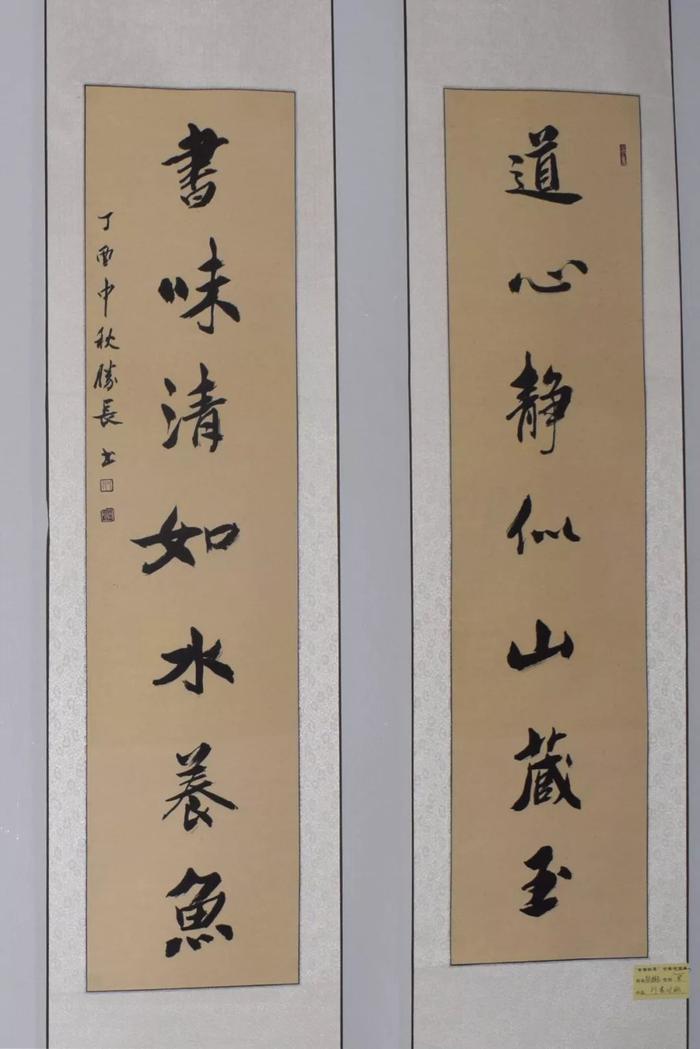 道心静似山藏玉
書味清如水養魚
丁酉中秋勝長书